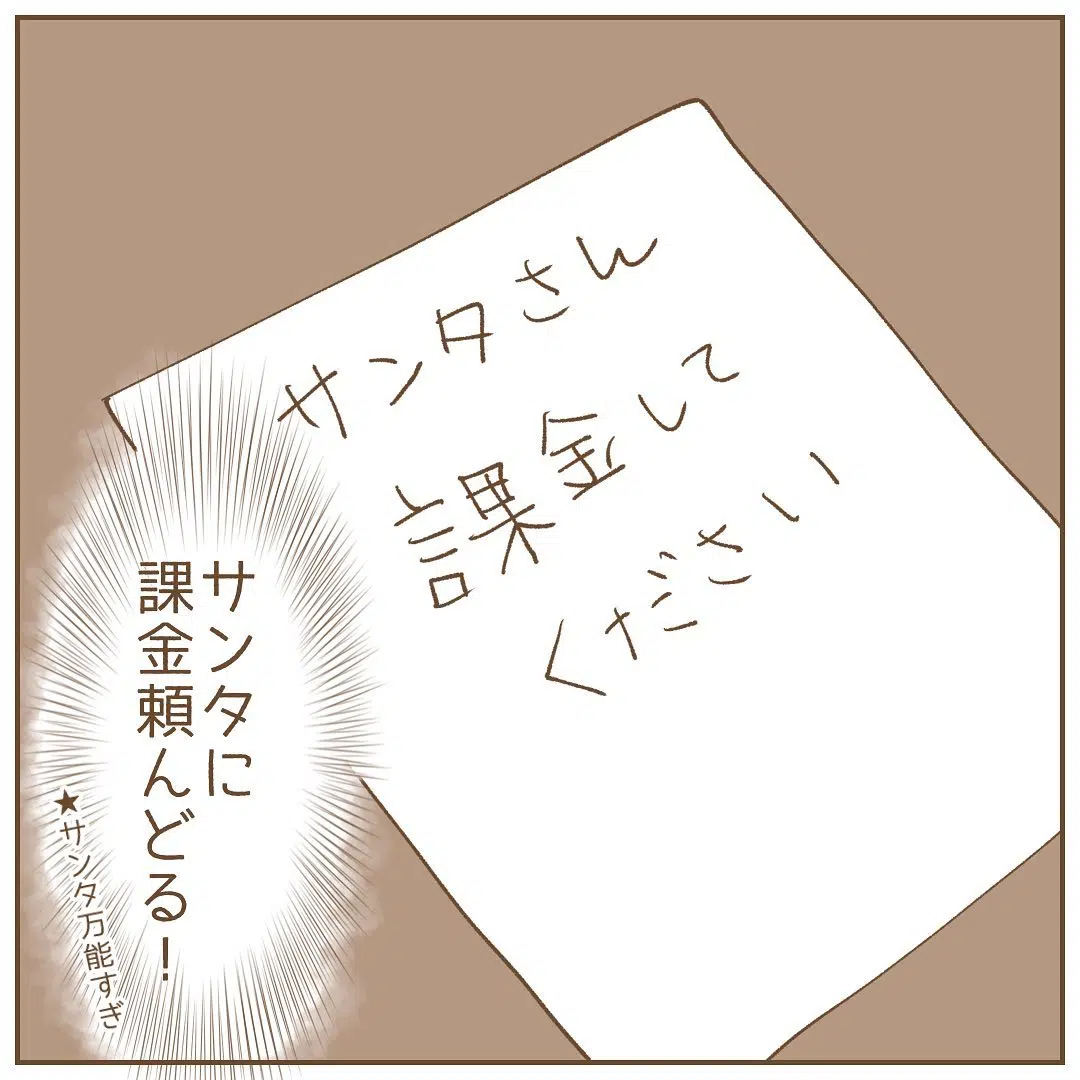 サンタさん
課金して
ください
サンタに
課金頼んどる！
★サンタ万能すぎ